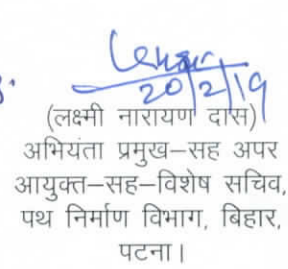 20/2/19
(लक्ष्मी नारायण दास)
अभियंता प्रमुख–सह अपर
आयुक्त–सह–विशेष सचिव,
पथ निर्माण विभाग, बिहार,
पटना।